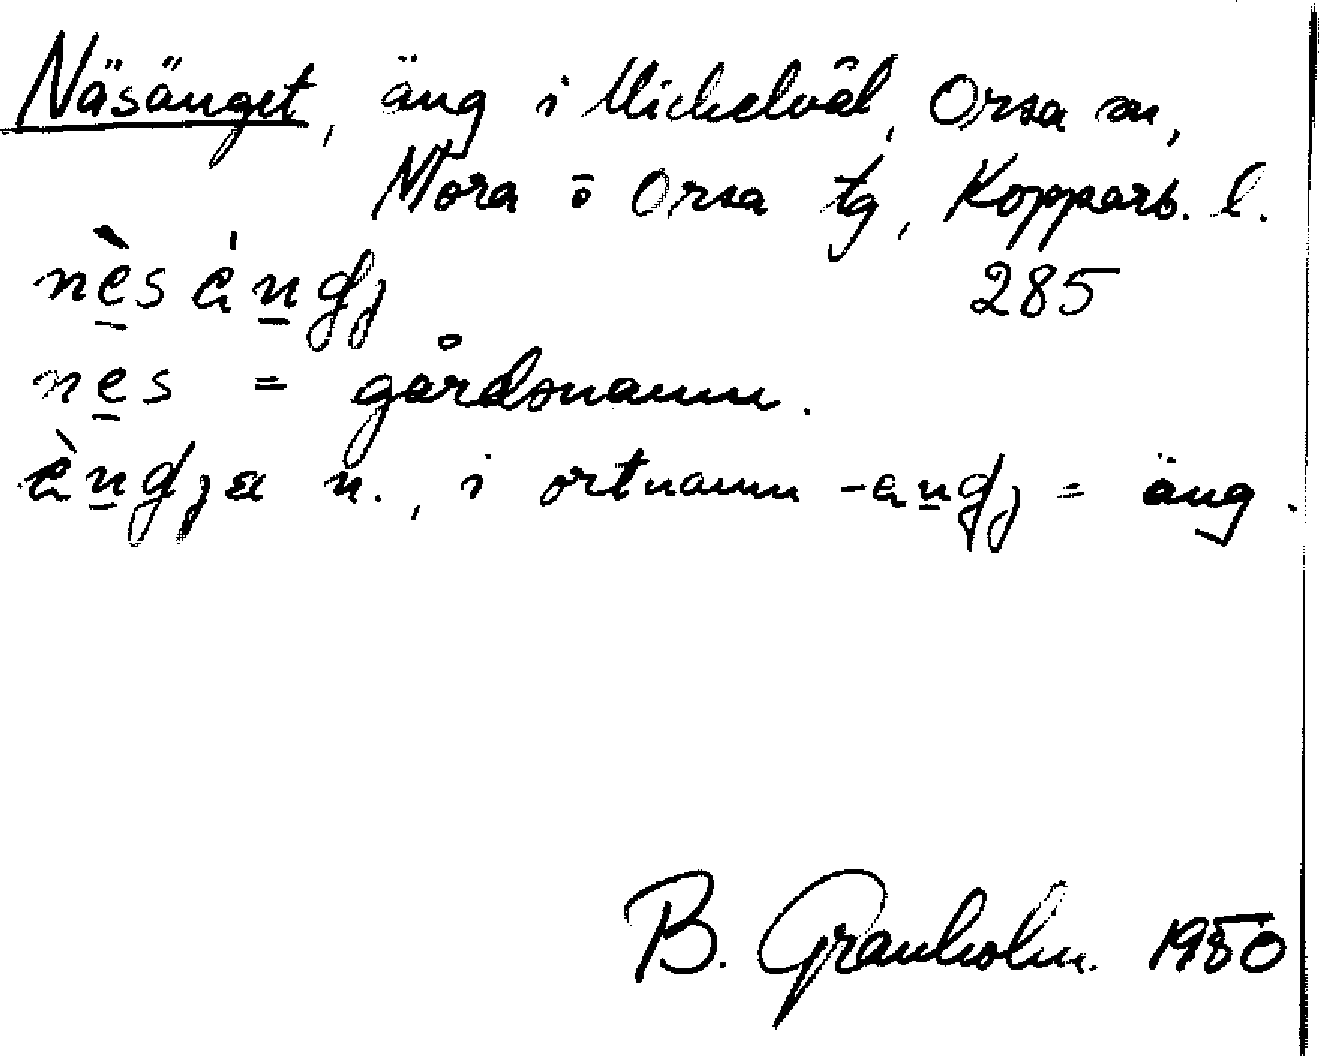 Näsänget, äng i Mickelvål, Orsa sn,
Mora o Orsa tg, Kopparb. l.
285
nes = gårdsnamn.
n., i ortnamn = äng.
B. Granholm. 1950